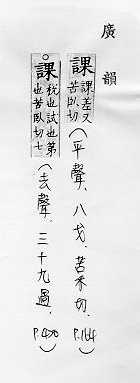 廣韻
課 課差又苦臥切（平聲、八戈、苦禾切、P.164）
○課 稅也試也第也苦臥切七（去聲、三十九過、P.420）